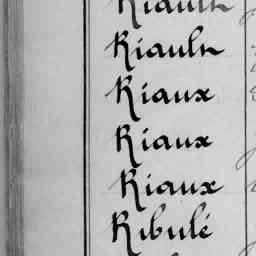 Riault
Riault
Riaux
Riaux
Riaux
Ribulé